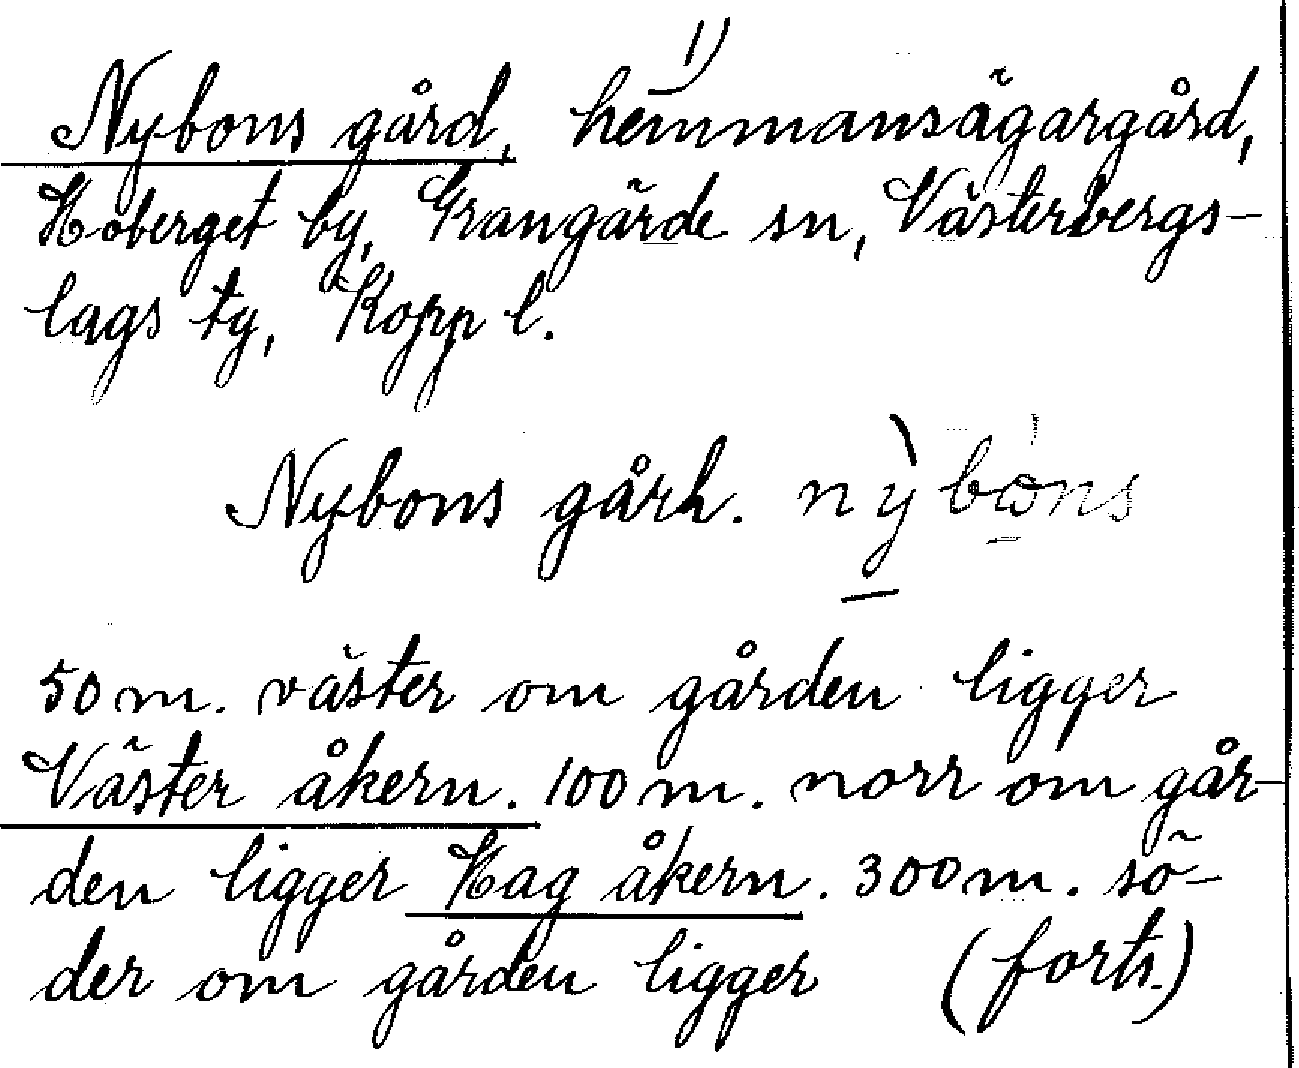 1)
Nybons gård, hemmansägargård,
Hoberget by, Grangärde sn, Västerbergs-
lags tg, Kopp l.
Nybons gårh. nỳbons
50 m. väster om gården ligger
Väster åkern. 100 m. norr om går-
den ligger Hag åkern. 300 m. sö-
der om gården ligger (forts.)